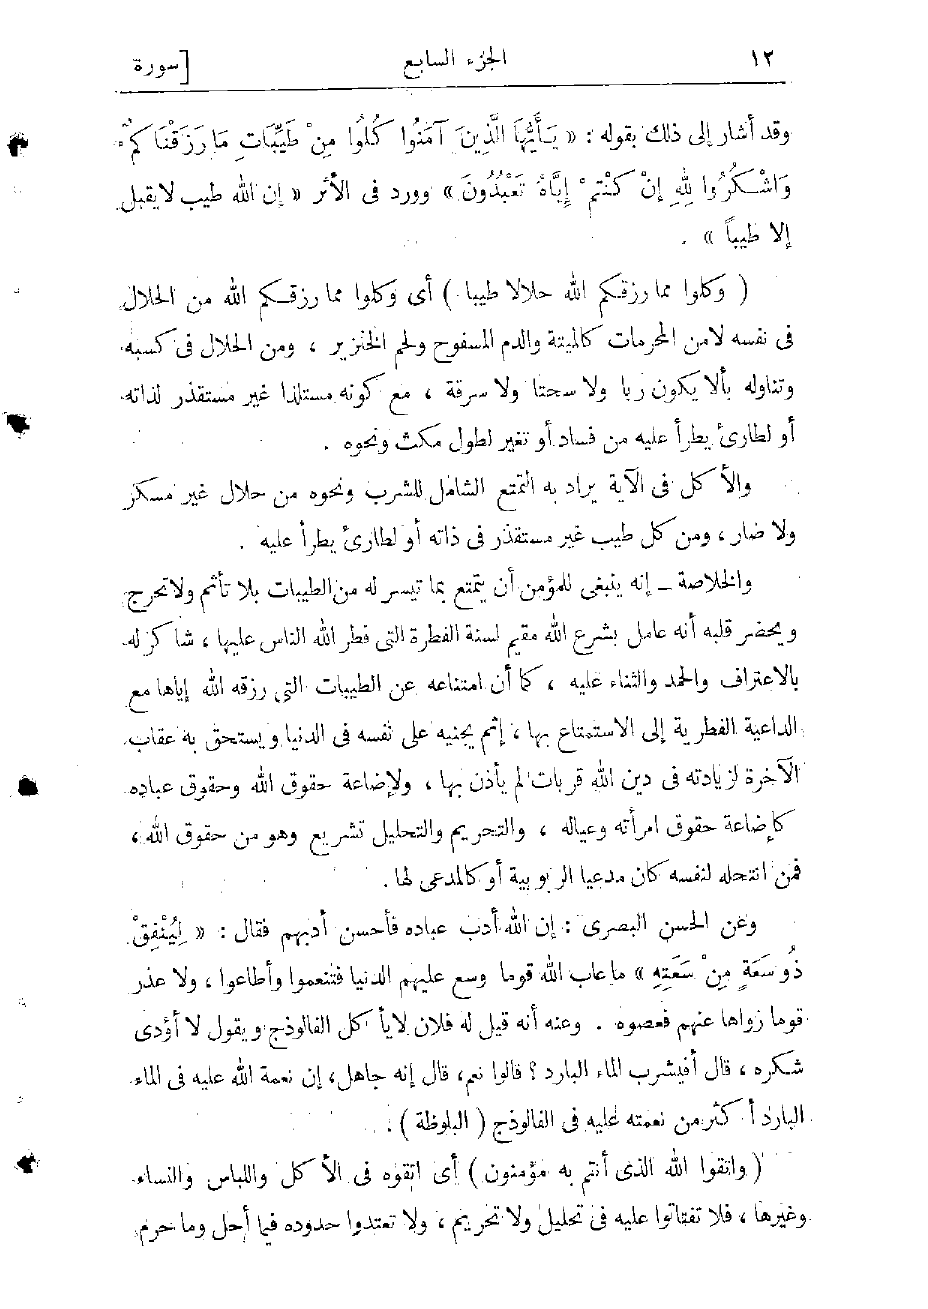 ١٢ الجزء السابع [سورة
وقد أشار إلى ذلك بقوله : « يَأَيُّهَا الَّذِينَ آمَنُوا كُلُوا مِنْ طَيِّبَاتِ مَا رَزَقْنَاكُمْ
وَاشْكُرُوا لِلهِ إِنْ كُنْتُمْ إِيَّاهُ تَعْبُدُونَ » وورد فى الأثر « إن الله طيب لا يقبل
إلا طيباً » .
( وكلوا مما رزقكم الله حلالا طيبا ) أى وكلوا مما رزقكم الله من الحلال
فى نفسه لا من المحرمات كالميتة والدم المسفوح ولحم الخنزير ، ومن الحلال فى كسبه
وتناوله بألا يكون ربا ولا سحتا ولا سرقة ، مع كونه مستلذا غير مستقذر لذاته
أو لطارئ يطرأ عليه من فساد أو تغير لطول مكث ونحوه .
والأكل فى الآية يراد به التمتع الشامل للشرب ونحوه من حلال غير مسكر
ولا ضار ، ومن كل طيب غير مستقذر فى ذاته أو لطارئ يطرأ عليه .
والخلاصة ـ إنه ينبغى للمؤمن أن يتمتع بما تيسر له من الطيبات بلا تأثم ولا تحرج
ويحضر قلبه أنه عامل بشرع الله مقيم لسنة الفطرة التى فطر الله الناس عليها ، شاكر له
بالاعتراف والحمد والثناء عليه ، كما أن امتناعه عن الطيبات التى رزقه الله إياها مع
الداعية الفطرية إلى الاستمتاع بها ، إثم يجنيه على نفسه فى الدنيا ويستحق به عقاب
الآخرة لزيادته فى دين الله قربات لم يأذن بها ، ولإضاعة حقوق الله وحقوق عباده
كإضاعة حقوق امرأته وعياله ، والتحريم والتحليل تشريع وهو من حقوق الله ،
فمن انتحله لنفسه كان مدعيا الربوبية أو كالمدعى لها .
وعن الحسن البصرى : إن الله أدب عباده فأحسن أدبهم فقال : « لِيُنْفِقْ
ذُو سَعَةٍ مِنْ سَعَتِهِ » ما عاب الله قوما وسع عليهم الدنيا فتنعموا وأطاعوا ، ولا عذر
قوما زواها عنهم فعصوه . وعنه أنه قيل له فلان لا يأكل الفالوذج ويقول لا أؤدى
شكره ، قال أفيشرب الماء البارد ؟ قالوا نعم ، قال إنه جاهل ، إن نعمة الله عليه فى الماء
البارد أكثر من نعمته عليه فى الفالوذج ( البلوظة ) .
( واتقوا الله الذى أنتم به مؤمنون ) أى اتقوه فى الأكل واللباس والنساء
وغيرها ، فلا تفتاتوا عليه فى تحليل ولا تحريم ، ولا تعتدوا حدوده فيما أحل وما حرم